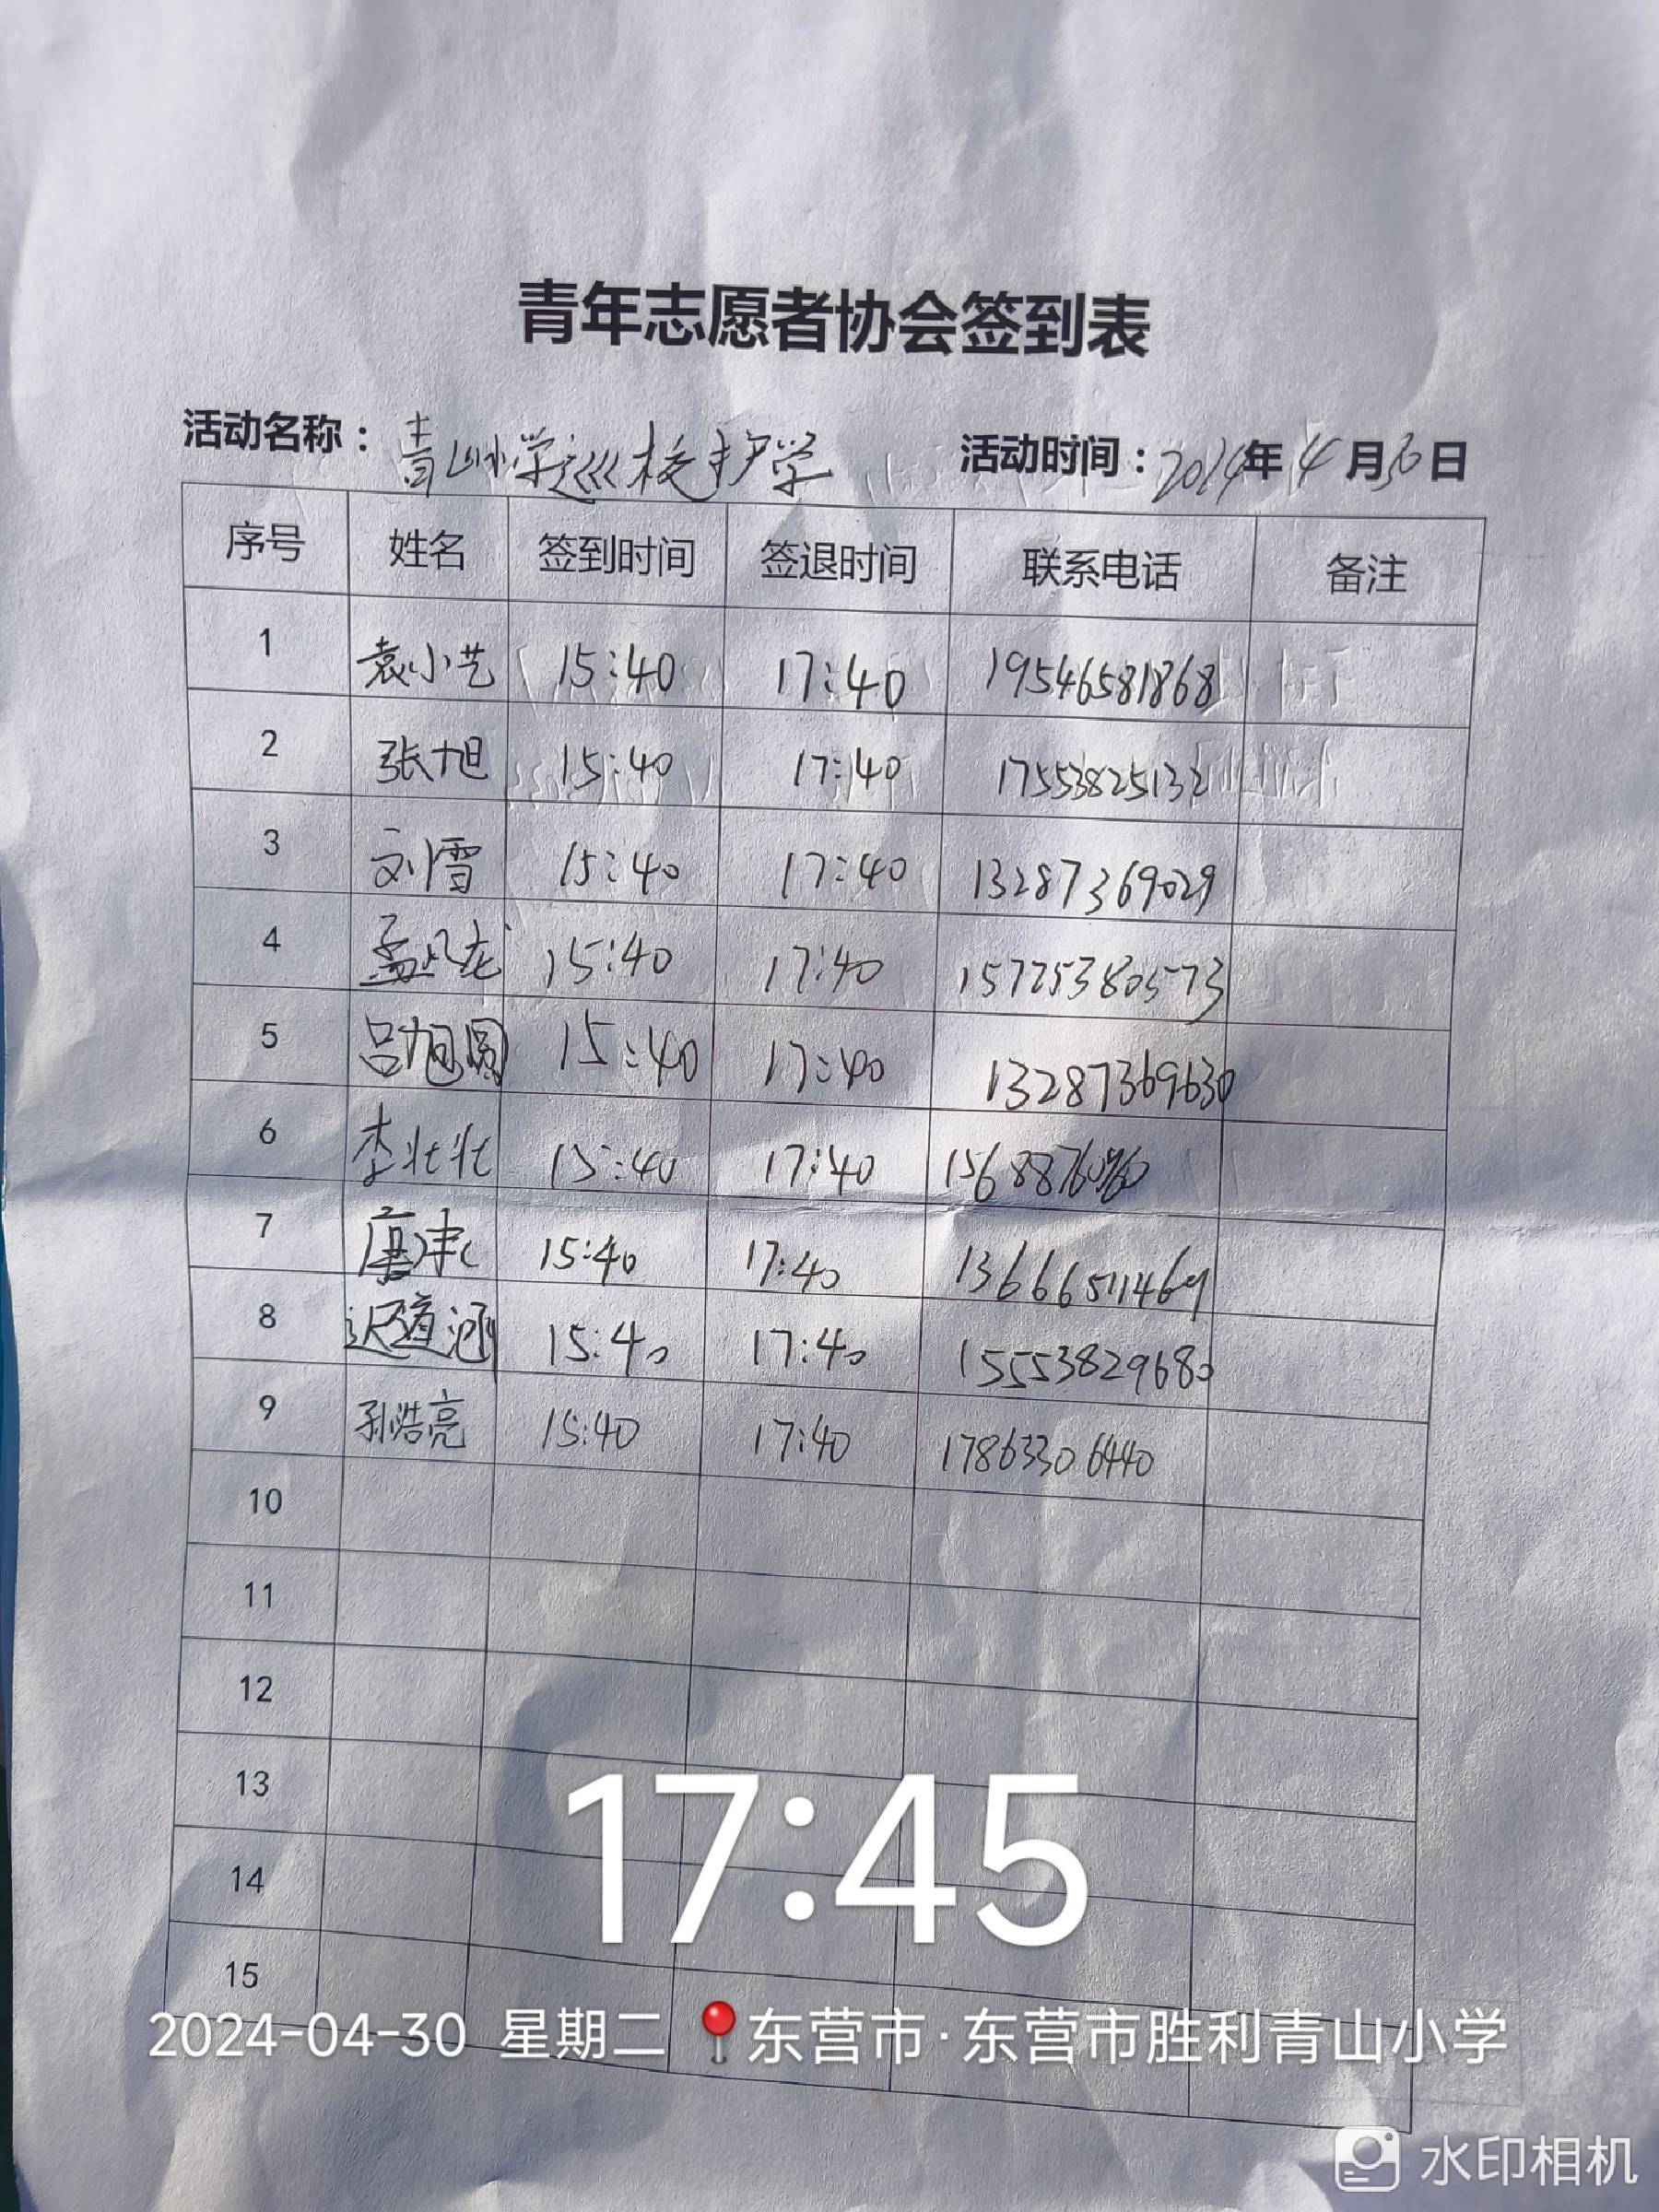 青年志愿者协会签到表
活动名称：青山小学巡校护学 活动时间：2024年4月30日
序号 姓名 签到时间 签退时间 联系电话 备注
1 袁小艺 15:40 17:40 19546581868
2 张旭 15:40 17:40 17553825132
3 刘雪 15:40 17:40 13287369029
4 孟凡龙 15:40 17:40 15725380573
5 吕旭圆 15:40 17:40 13287369630
6 李壮壮 15:40 17:40
7 唐 15:40 17:40 13666511469
8 迟道涵 15:40 17:40 15553829680
9 孙浩亮 15:40 17:40 17863306440
10
11
12
13
14
15
17:45
2024-04-30 星期二 东营市·东营市胜利青山小学
水印相机